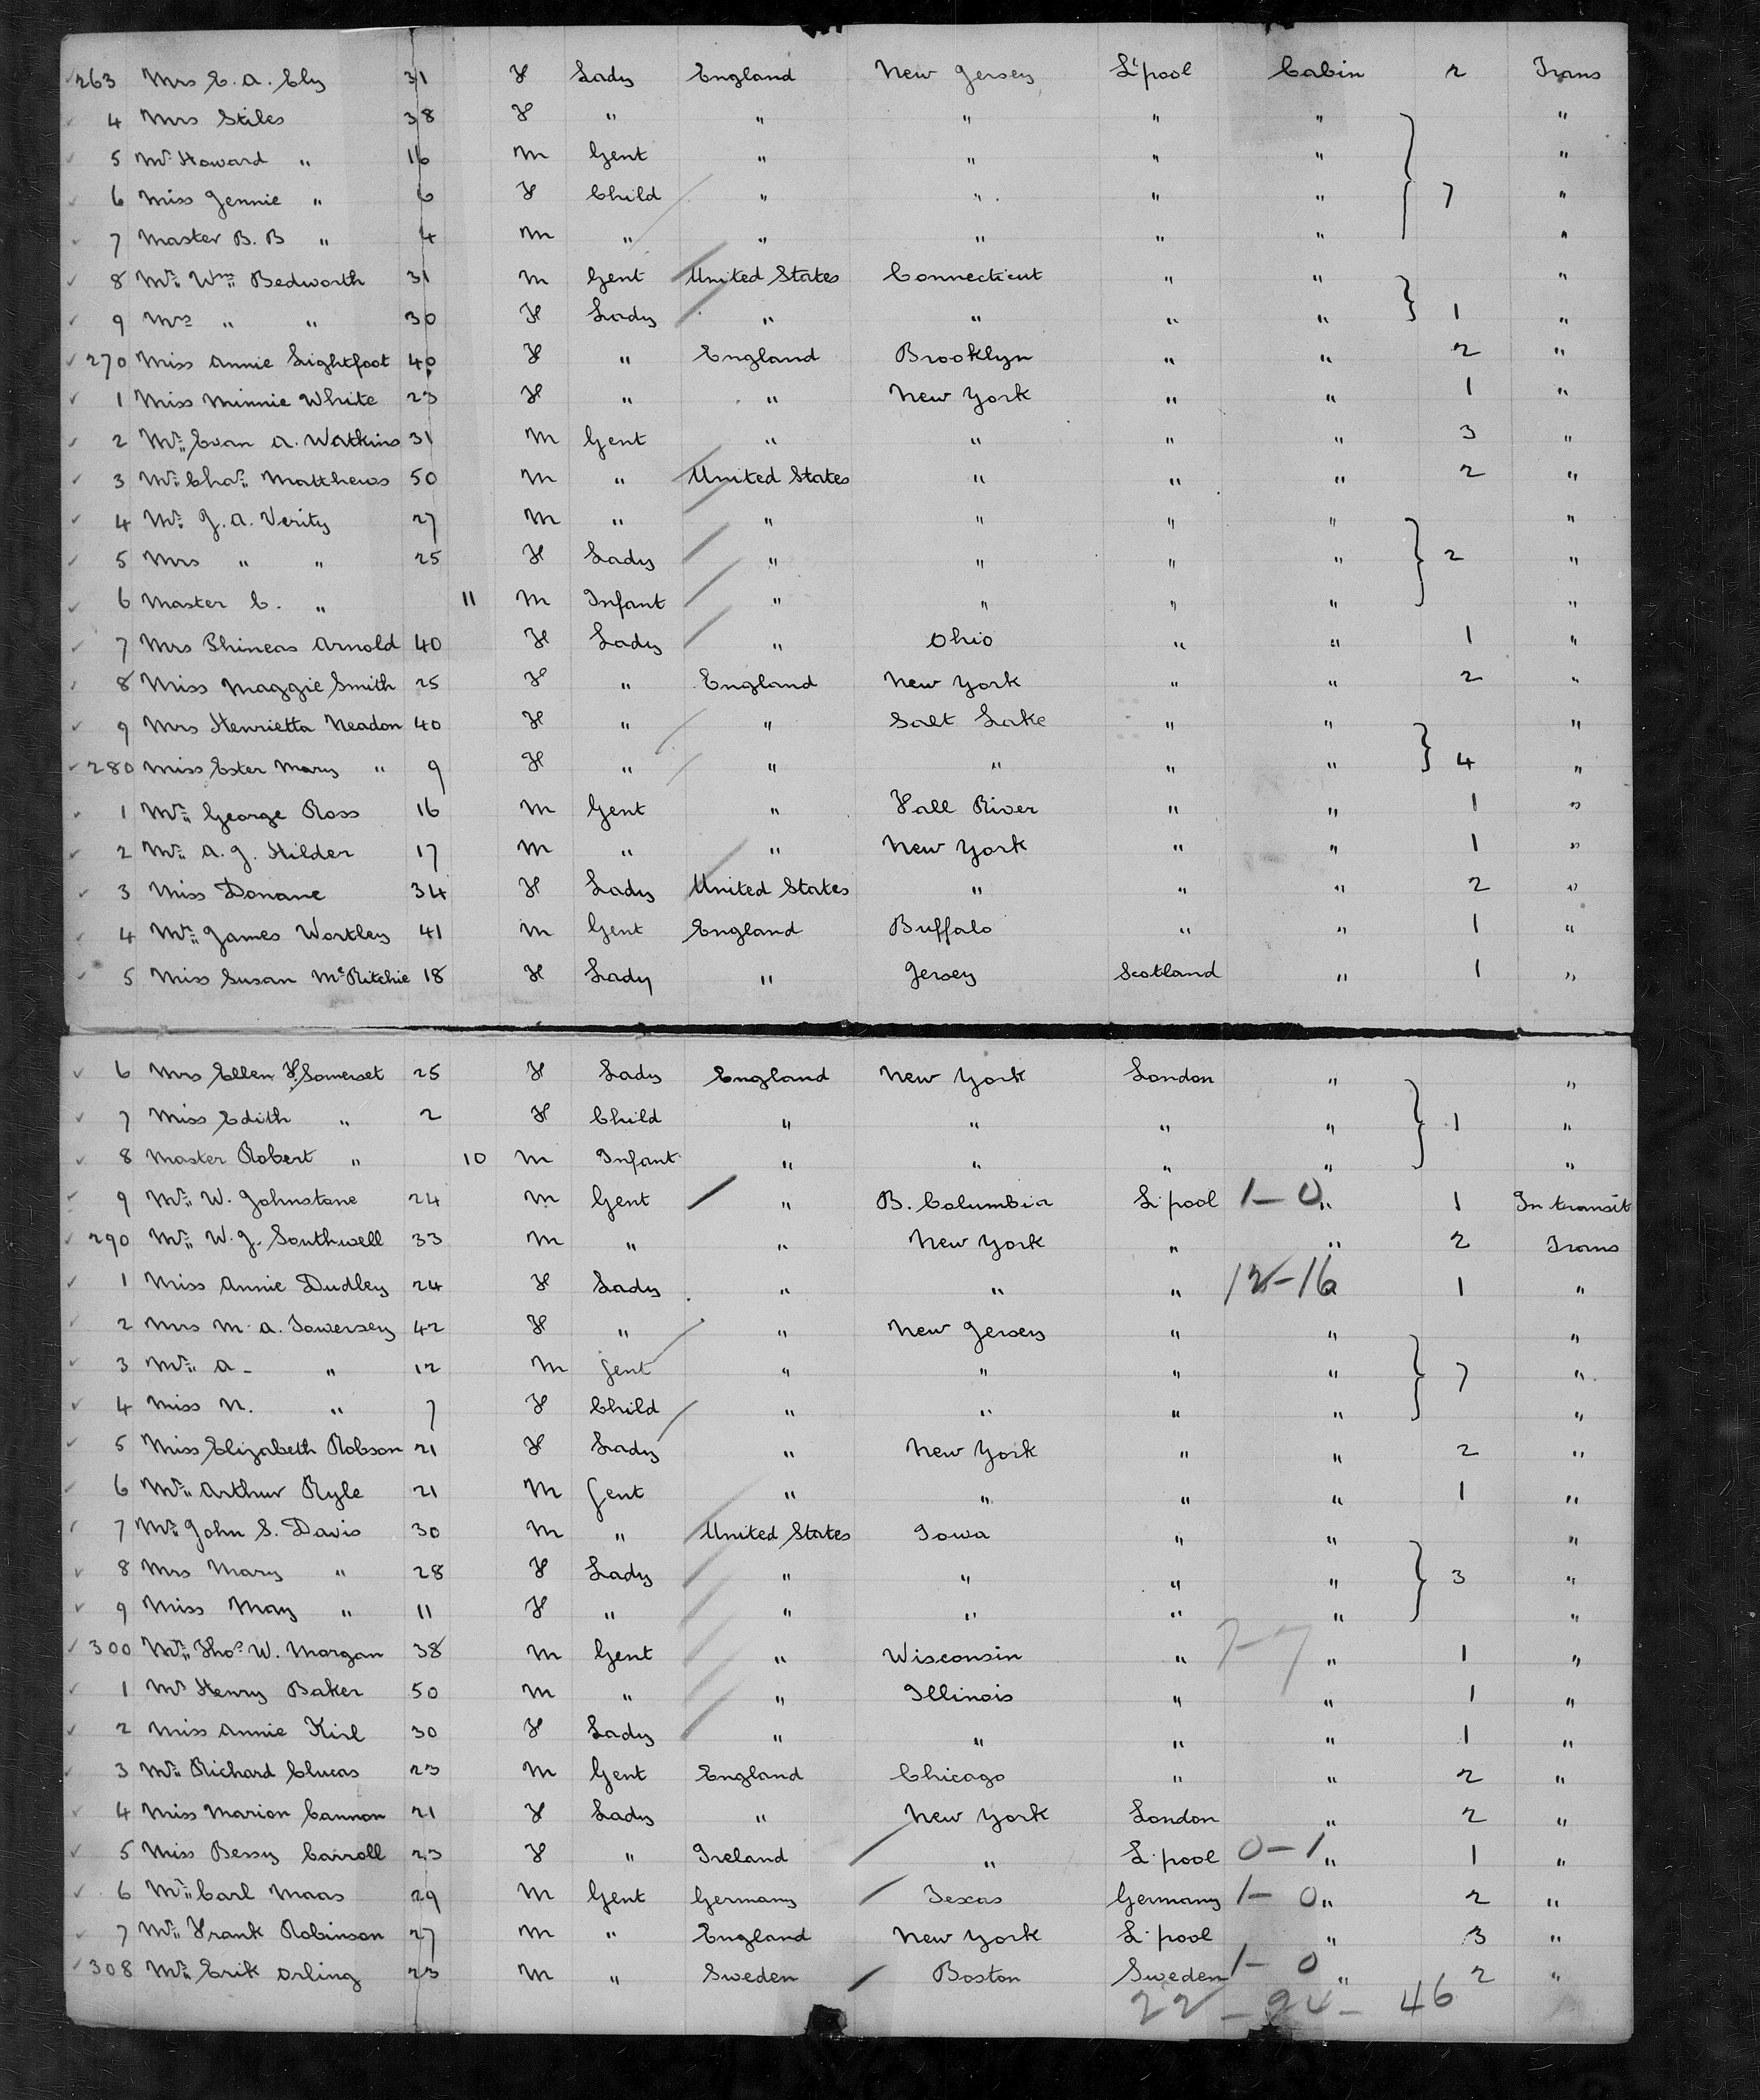 263 Mrs E. A. Ely 31 F Lady England New Jersey L'pool Cabin 2 Trans
4 Mrs Stiles 38 F " " " " " "
5 Mr Howard " 16 M Gent " " " " "
6 Miss Jennie " 6 F Child " " " " 7 "
7 Master B. B " 4 M " " " " " "
8 Mr. Wm. Bedworth 31 M Gent United States Connecticut " " "
9 Mrs " " 30 F Lady " " " " 1 "
270 Miss Annie Lightfoot 40 F " England Brooklyn " " 2 "
1 Miss Minnie White 23 F " " New York " " 1 "
2 Mr. Evan A. Watkins 31 M Gent " " " " 3 "
3 Mr. Chas. Matthews 50 M " United States " " " 2 "
4 Mr. J. A. Verity 27 M " " " " " "
5 Mrs " " 25 F Lady " " " " 2 "
6 Master C. " 11 M Infant " " " " "
7 Mrs Phineas Arnold 40 F Lady " Ohio " " 1 "
8 Miss Maggie Smith 25 F " England New York " " 2 "
9 Mrs Henrietta Neadon 40 F " " Salt Lake " " "
280 Miss Ester Mary " 9 F " " " " " 4 "
1 Mr. George Ross 16 M Gent " Fall River " " 1 "
2 Mr. A. J. Hilder 17 M " " New York " " 1 "
3 Miss Donane 34 F Lady United States " " " 2 "
4 Mr. James Wortley 41 M Gent England Buffalo " " 1 "
5 Miss Susan McRitchie 18 F Lady " Jersey Scotland " 1 "
6 Mrs Ellen F. Somerset 25 F Lady England New York London " "
7 Miss Edith " 2 F Child " " " " 1 "
8 Master Robert " 10 M Infant " " " " "
9 Mr. W. Johnstone 24 M Gent " B. Columbia L'pool 1-0 " 1 In transit
290 Mr. W. J. Southwell 33 M " " New York " " 2 Trans
1 Miss Annie Dudley 24 F Lady " " " 12-16 1 "
2 Mrs M. A. Towersey 42 F " " New Jersey " " "
3 Mr. A- " 12 M Gent " " " " 7 "
4 Miss N. " 7 F Child " " " " "
5 Miss Elizabeth Robson 21 F Lady " New York " " 2 "
6 Mr. Arthur Ryle 21 M Gent " " " " 1 "
7 Mr. John S. Davis 30 M " United States Iowa " " "
8 Mrs Mary " 28 F Lady " " " " 3 "
9 Miss May " 11 F " " " " " "
300 Mr. Thos. W. Morgan 38 M Gent " Wisconsin " 7-7 " 1 "
1 Mr Henry Baker 50 M " " Illinois " " 1 "
2 Miss Annie Kirl 30 F Lady " " " " 1 "
3 Mr. Richard Clucas 23 M Gent England Chicago " " 2 "
4 Miss Marion Cannon 21 F Lady " New York London " 2 "
5 Miss Bessy Carroll 23 F " Ireland " L'pool 0-1 " 1 "
6 Mr. Carl Maas 29 M Gent Germany Texas Germany 1-0 " 2 "
7 Mr. Frank Robinson 27 M " England New York L'pool " 3 "
308 Mr. Erik Orling 23 M " Sweden Boston Sweden 1-0 " 2 "
22 - 24 - 46